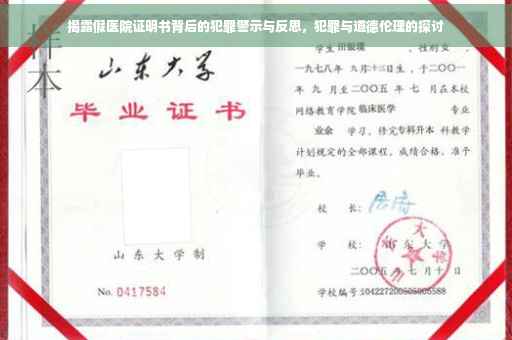 揭露假医院证明书背后的犯罪警示与反思，犯罪与道德伦理的探讨
样本
山东大学
毕业证书
山东大学制
No. 0417584
学生 田银瑞 ，性别女，
一九七八年 九月十三日生，于二〇〇一
年 九 月至二〇〇五 年 七 月在本校
网络教育学院 临床医学 专业
业余 学习，修完专科升本 科教学
计划规定的全部课程，成绩合格，准予
毕业。
校 长：
学 校： 山东大学
二〇〇五 年 七 月 十 日
学校编号:104227200505005588